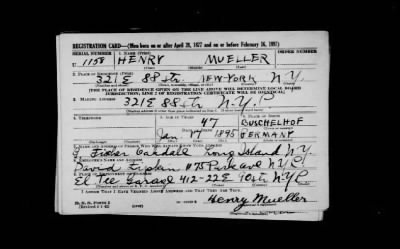 REGISTRATION CARD—(Men born on or after April 28, 1877 and on or before February 16, 1897)
SERIAL NUMBER 1. NAME (Print) ORDER NUMBER
U 1158 HENRY MUELLER
(First) (Middle) (Last)
2. PLACE OF RESIDENCE (Print)
321 E 88 str. NEW-YORK N.Y.
(THE PLACE OF RESIDENCE GIVEN ON THE LINE ABOVE WILL DETERMINE LOCAL BOARD
JURISDICTION; LINE 2 OF REGISTRATION CERTIFICATE WILL BE IDENTICAL)
3. MAILING ADDRESS
321 E 88 str N.Y.C
4. TELEPHONE 5. AGE IN YEARS 6. PLACE OF BIRTH
47 BUSCHELHOF
DATE OF BIRTH
Jan 1895 GERMANY
7. NAME AND ADDRESS OF PERSON WHO WILL ALWAYS KNOW YOUR ADDRESS
Long Island N.Y.
8. EMPLOYER'S NAME AND ADDRESS
David 1175 Park ave N.Y.C
9. PLACE OF EMPLOYMENT OR BUSINESS
El Tee Garage 412-22 E str N.Y.C
I AFFIRM THAT I HAVE VERIFIED ABOVE ANSWERS AND THAT THEY ARE TRUE.
D. S. S. Form 1
Henry Mueller